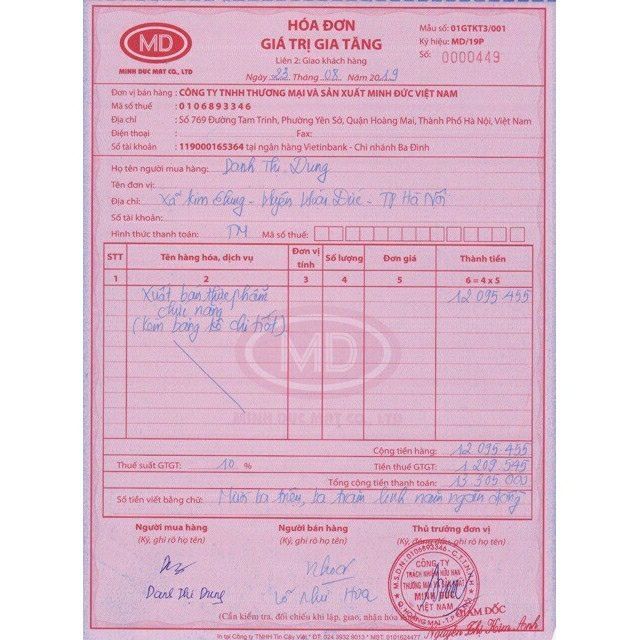 MD
MINH DUC MAT CO., LTD
HÓA ĐƠN
GIÁ TRỊ GIA TĂNG
Liên 2: Giao khách hàng
Ngày 23 Tháng 08 Năm 2019
Mẫu số: 01GTKT3/001
Ký hiệu: MD/19P
Số: 0000449
Đơn vị bán hàng : CÔNG TY TNHH THƯƠNG MẠI VÀ SẢN XUẤT MINH ĐỨC VIỆT NAM
Mã số thuế : 0106893346
Địa chỉ : Số 769 Đường Tam Trinh, Phường Yên Sở, Quận Hoàng Mai, Thành Phố Hà Nội, Việt Nam
Điện thoại : Fax:
Số tài khoản : 119000165364 tại ngân hàng Vietinbank - Chi nhánh Ba Đình
Họ tên người mua hàng: Danh Thị Dung
Tên đơn vị:
Địa chỉ: Xã Kim Chung - Huyện Hoài Đức - TP Hà Nội
Số tài khoản:
Hình thức thanh toán: TM Mã số thuế:
STT Tên hàng hóa, dịch vụ Đơn vị tính Số lượng Đơn giá Thành tiền
1 2 3 4 5 6 = 4 x 5
Xuất bán thực phẩm 12 095 455
chức năng
(Kèm bảng kê chi tiết)
MD
MINH DUC MAT CO., LTD
Cộng tiền hàng: 12 095 455
Thuế suất GTGT: 10 % Tiền thuế GTGT: 1 209 545
Tổng cộng tiền thanh toán: 13 305 000
Số tiền viết bằng chữ: Mười ba triệu, ba trăm linh năm ngàn đồng
Người mua hàng Người bán hàng Thủ trưởng đơn vị
(Ký, ghi rõ họ tên) (Ký, ghi rõ họ tên) (Ký, đóng dấu, ghi rõ họ tên)
M.S.D.N: 0106893346 - C.T.T.N.H.H
CÔNG TY
TRÁCH NHIỆM HỮU HẠN
THƯƠNG MẠI VÀ SẢN XUẤT
MINH ĐỨC
VIỆT NAM
Q. HOÀNG MAI - T.P HÀ NỘI
Danh Thị Dung Võ Như Hoa
GIÁM ĐỐC
Nguyễn Thị Kim Anh
(Cần kiểm tra, đối chiếu khi lập, giao, nhận hóa